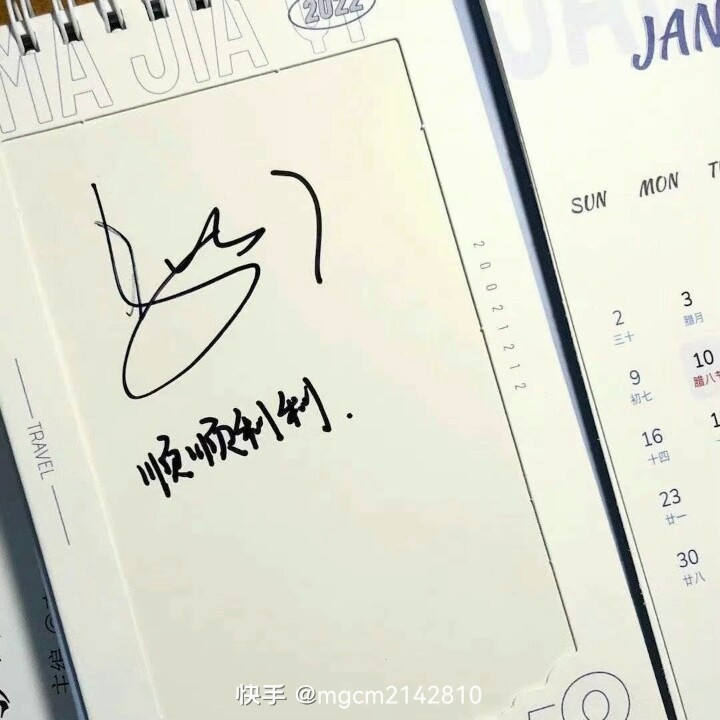 2022
MA JIA
JAN
SUN MON
2 3
三十 腊月
9 10
初七 腊八节
16
十四
23
廿一
30
廿八
20021212
TRAVEL
顺顺利利.
快手 @mgcm2142810